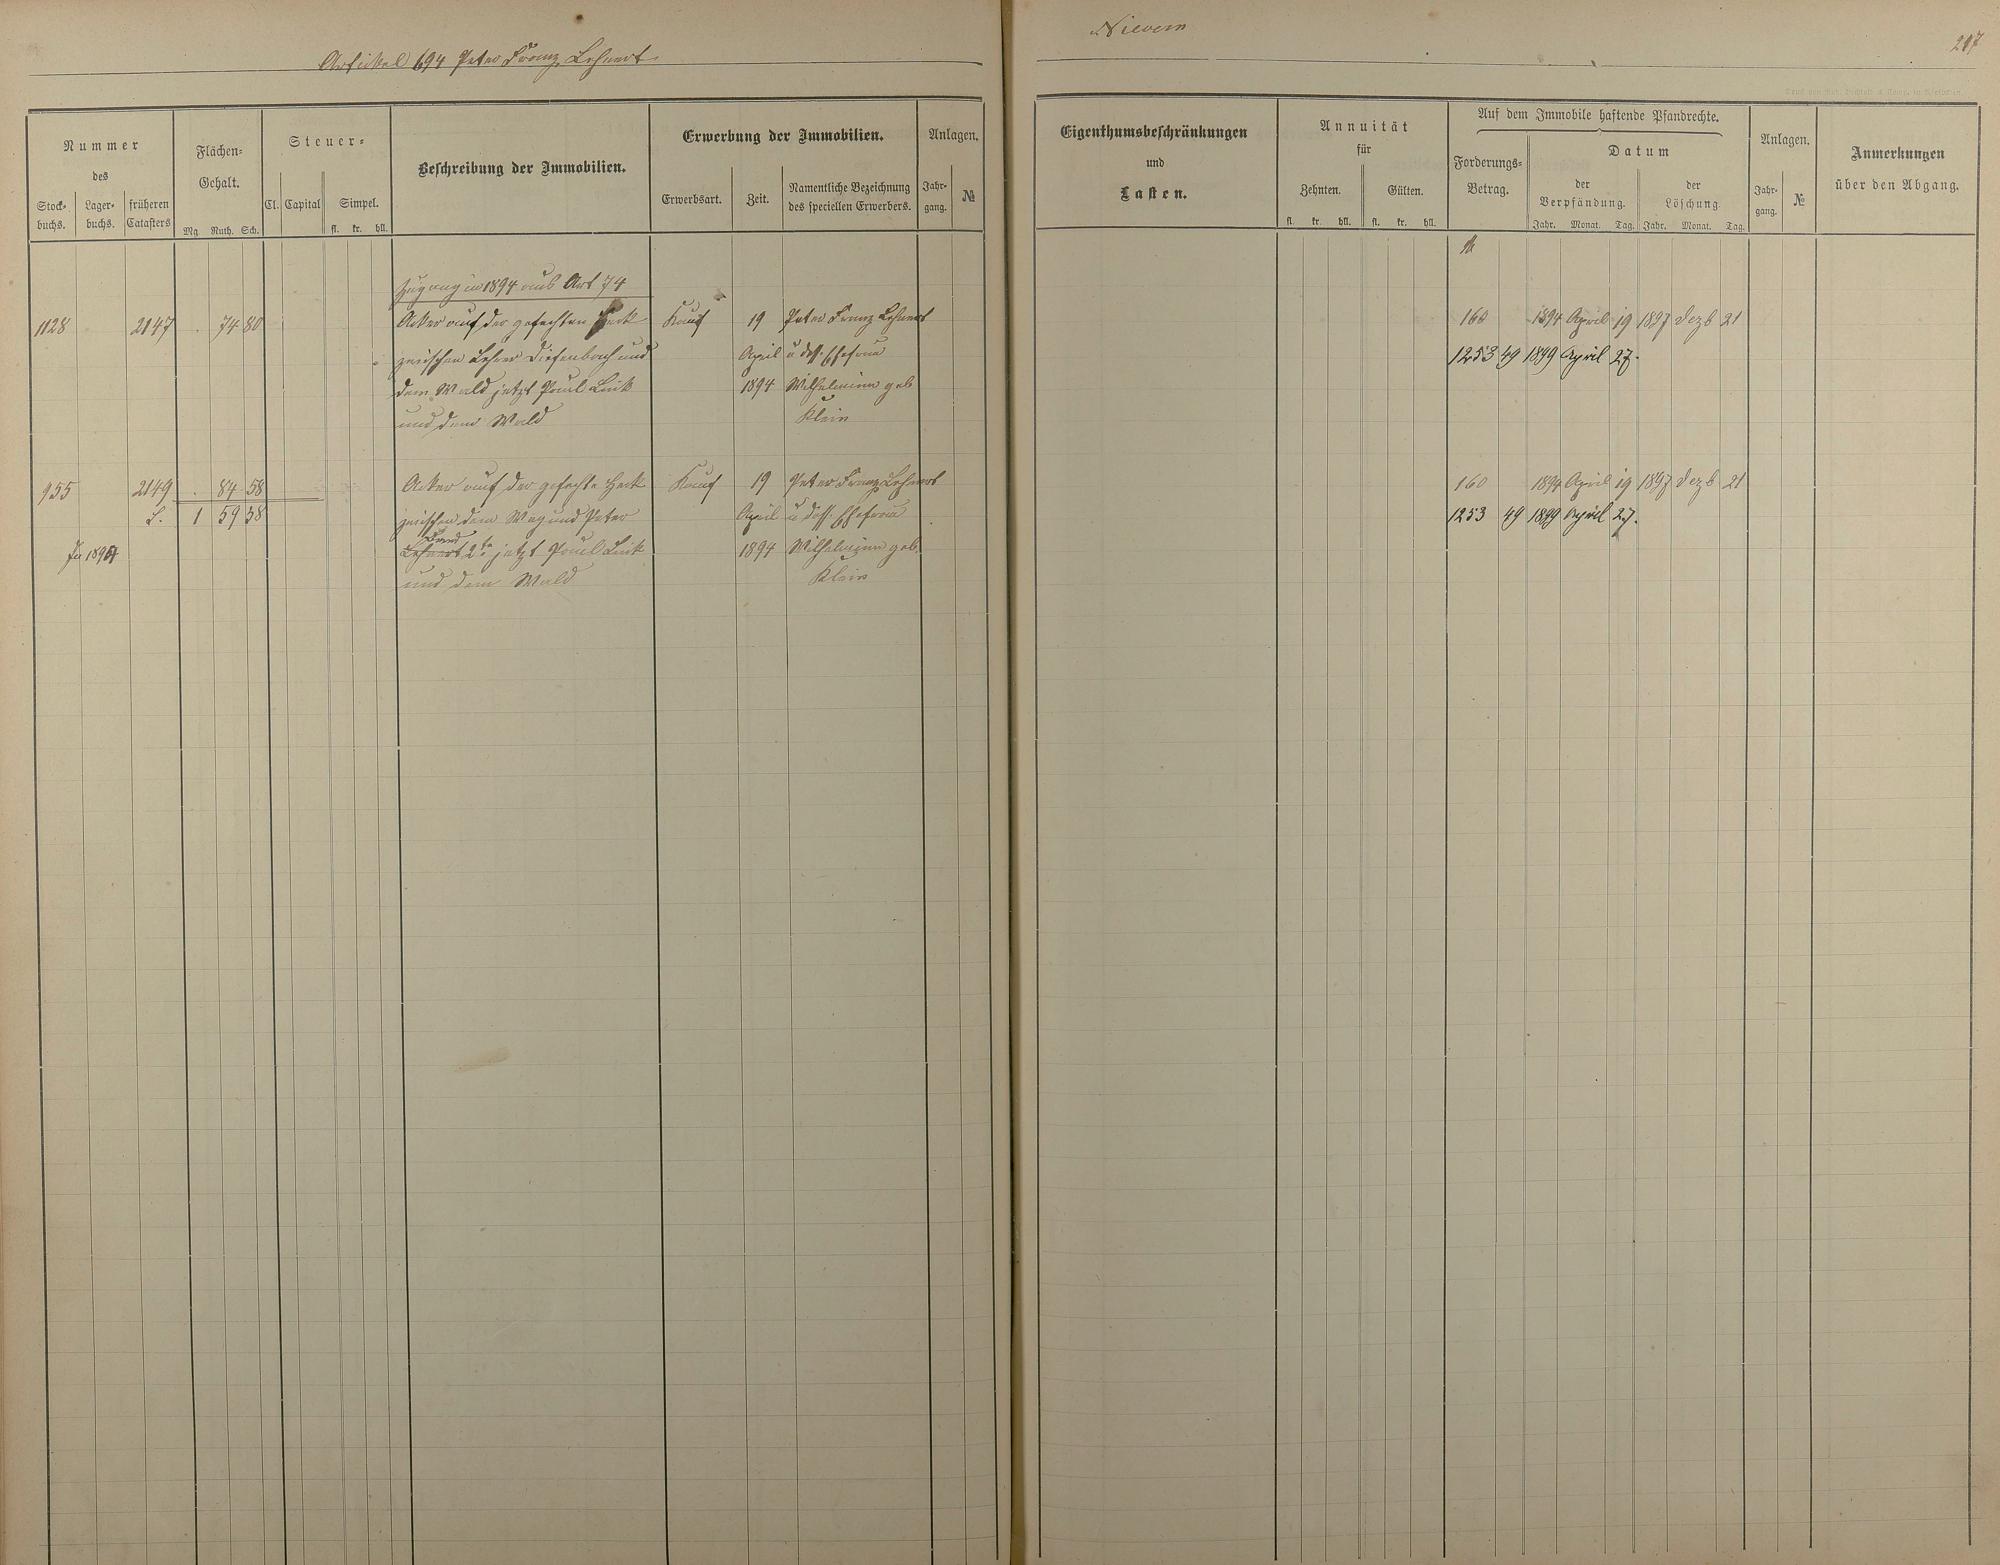 Artikel 694 Peter Franz Lehnert
Nievern
217
Nummer
des
Stock-
buchs.
Lager-
buchs.
früheren
Catasters
Flächen-
Gehalt.
Mg. Ruth. Sch.
Steuer-
Cl. Capital Simpel.
fl. kr. hll.
Beschreibung der Immobilien.
Erwerbung der Immobilien.
Erwerbsart. Zeit.
Namentliche Bezeichnung
des speciellen Erwerbers.
Anlagen.
Jahr-
gang.
№
Eigenthumsbeschränkungen
und
Lasten.
Annuität
für
Zehnten. Gülten.
fl. kr. hll. fl. kr. hll.
Auf dem Immobile haftende Pfandrechte.
Forderungs-
Betrag.
Datum
der
Verpfändung.
der
Löschung
Jahr. Monat. Tag. Jahr. Monat. Tag.
Anlagen.
Jahr-
gang.
№
Anmerkungen
über den Abgang.
Zugang in 1894 aus Art 74
1128 2147 . 74 80 Acker auf der gefechten Heck Kauf 19 Peter Franz Lehnert 160 1894 April 19 1897 Dezb 21
zwischen Lehrer Diefenbach und April u dess. Ehefrau 1253 49 1899 April 27.
dem Wald jetzt Paul Link 1894 Wilhelmine geb
und dem Wald Klein
955 2149 . 84 58 Acker auf der gefechte Heck Kauf 19 Peter Franz Lehnert 160 1894 April 19 1897 Dezb 21
S. 1 59 38 zwischen dem Weg und Peter April u dess. Ehefrau 1253 49 1899 April 27.
Lehnert 2te jetzt Paul Link 1894 Wilhelmine geb.
In 1894
und dem Wald Klein